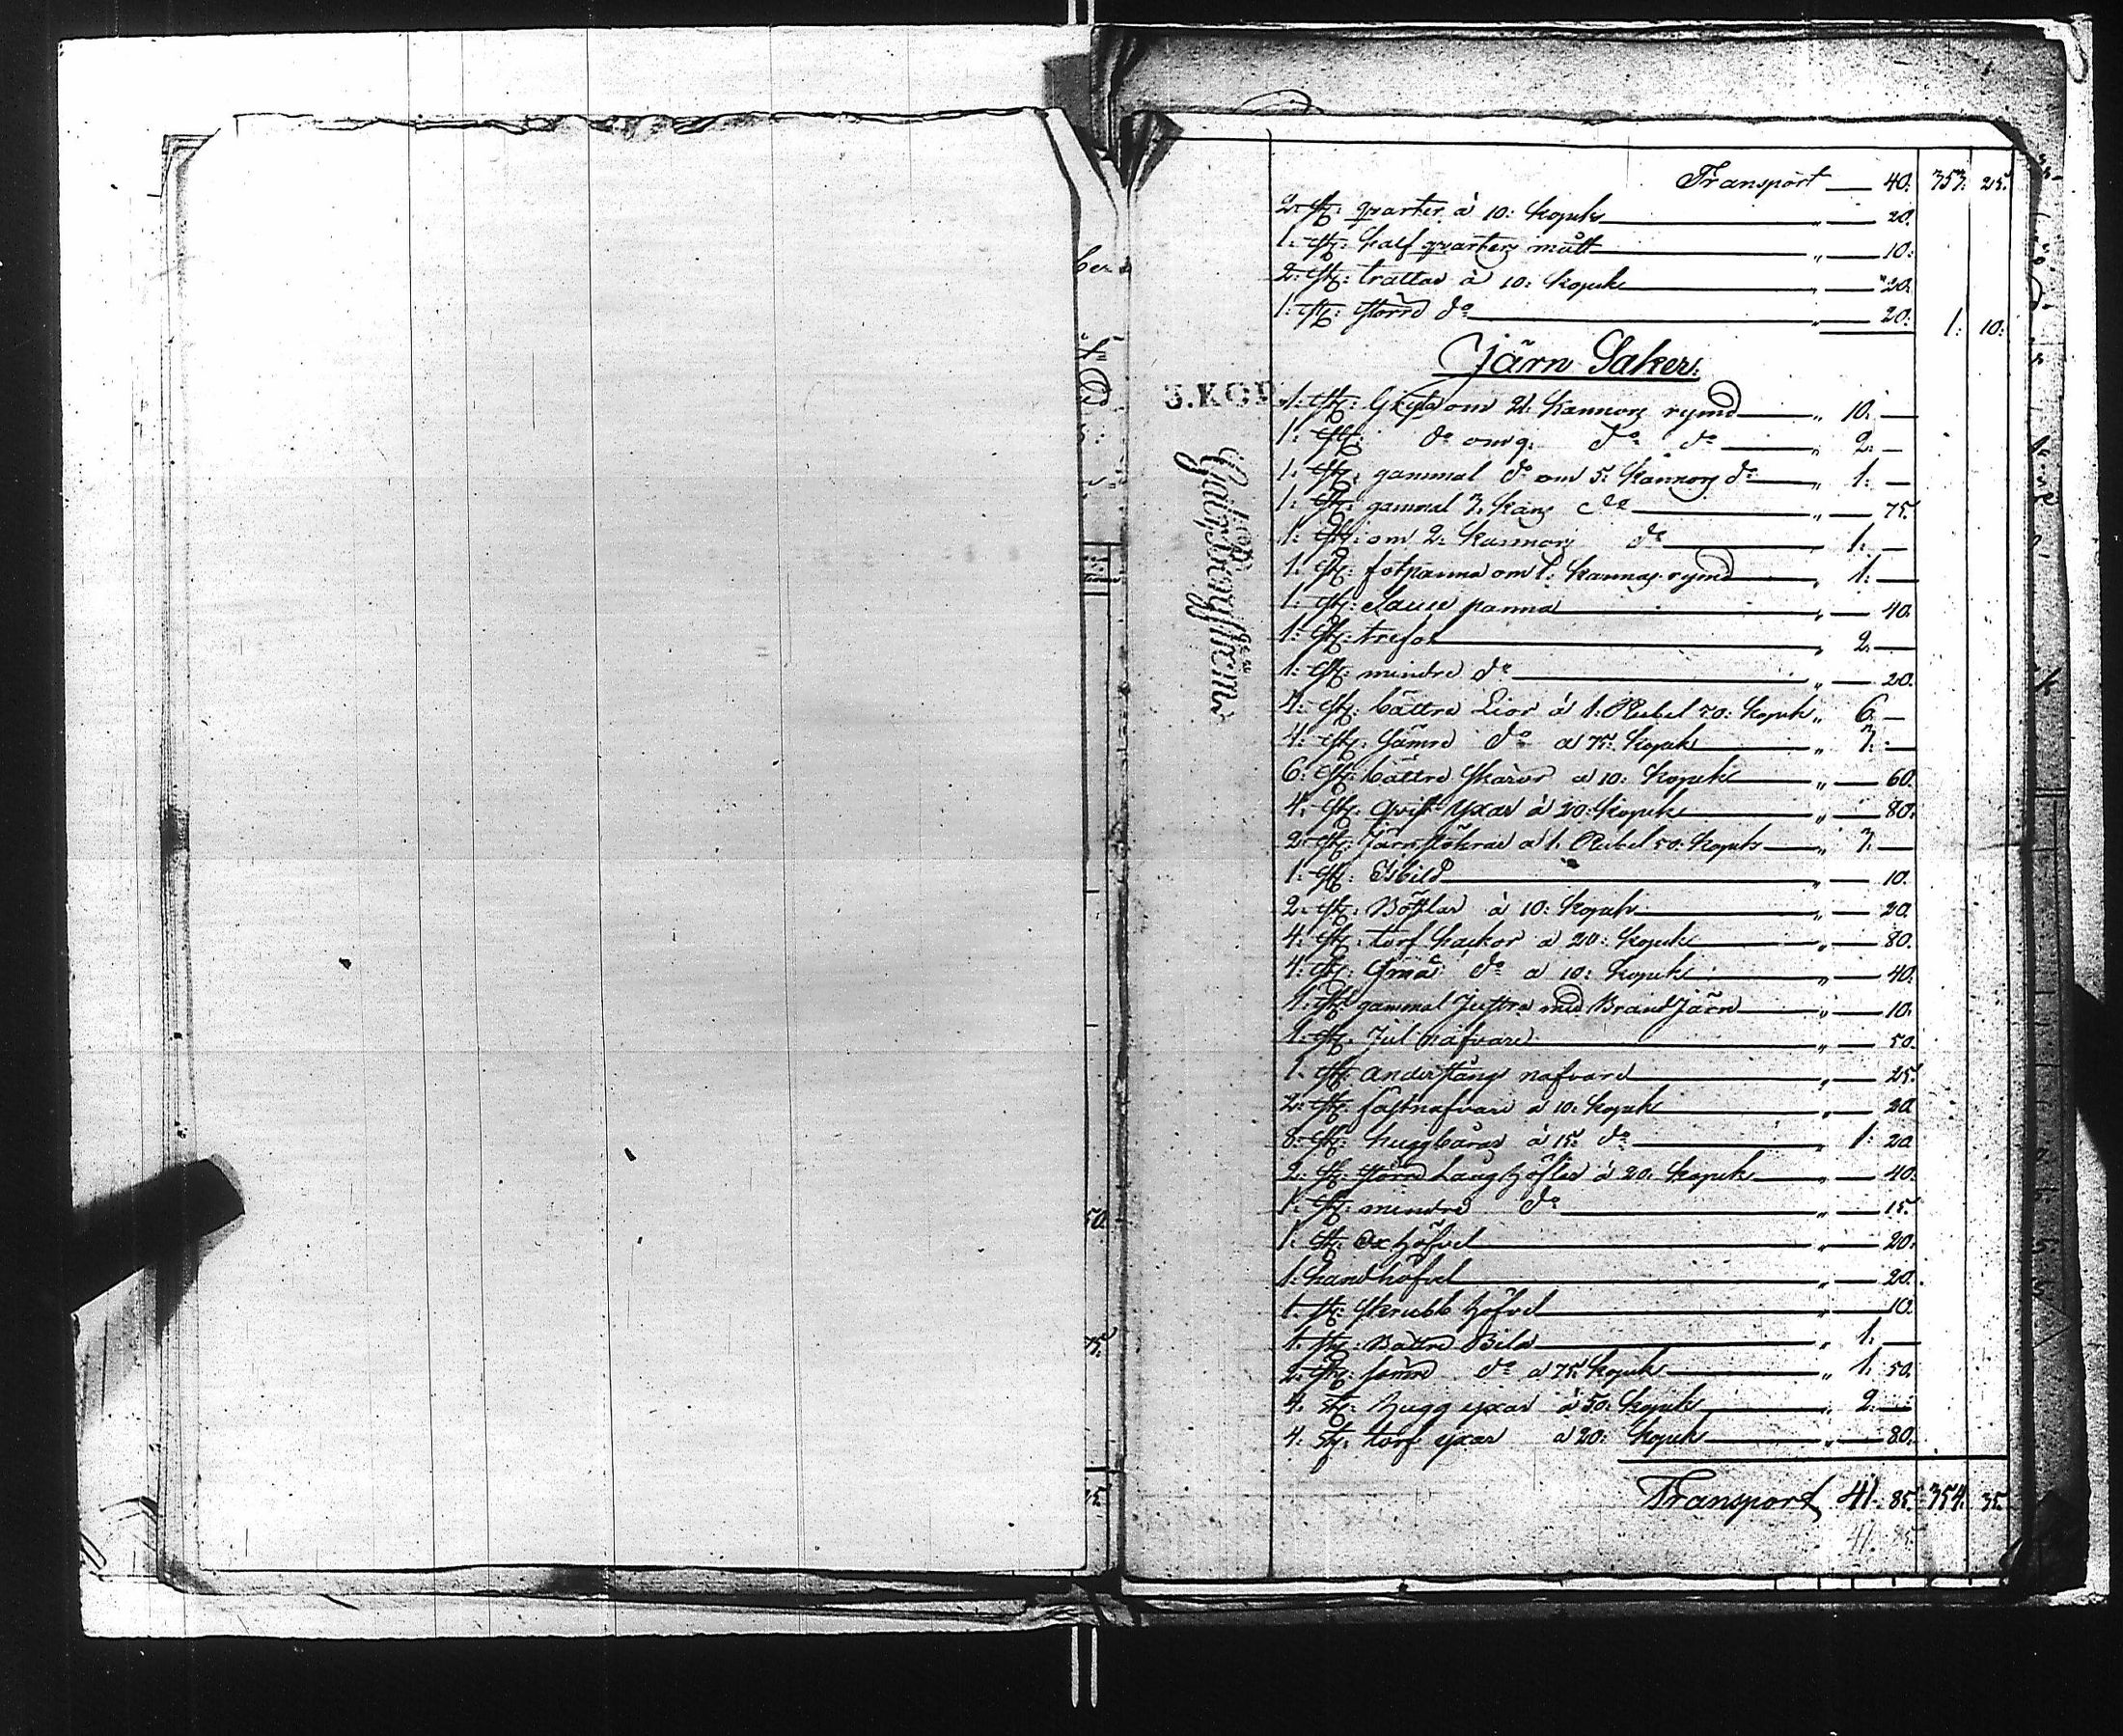 Transport — 40. 353. 25.
2. st: qvarter à 10: Kopek " — 20.
1. st: half qvarters mått " — 10:
2. st: trattar à 10: Kopek " — 20.
1. st: större do " — 20. 1: 10:
Järn Saker.
3.KOP.
1. st: Gryta om 21. Kannors rymd " 10. —
1. st: do om 9. do do " 2. —
1. st: gammal do om 5. Kannors do " 1: —
1. st: gammal 3. Kans do " — 75.
1. st: om 2. Kannors do " 1: —
1. st: fotpanna om 1. Kannas rymd " 1: —
1. st: Sause panna " — 40.
1. st: trefot " 2. —
1. st: mindre do " — 20.
4. st: bättre Lior à 1: Rubel 50: Kopek " 6. —
4. st: sämre do a 75. Kopek " 3. —
6. st: bättre Skäror a 10: Kopek " — 60.
4. st: qvist yxar à 20: Kopek " — 80.
2. st: Järnstöhrar à 1. Rubel 50: Kopek " 3. —
1. st: Isbild " — 10.
2. st: à 10: Kopek " — 20.
4. st: torf hackor a 20: Kopek " — 80.
4. st: små do a 10: Kopek " — 40.
1. st: gammal med Brand Järn " — 10.
1. st: Jul nafvare " — 50.
1. st: anderstång nafvare " — 25.
2. st: fästnafvare a 10: Kopek " — 20.
8. st: à 15. do " 1: 20.
2. st: större Lang höflar à 20. Kopek " — 40.
1. st: mindre do " — 15.
1. st: Ox höfvel " — 20.
1: handhöfvel " — 20.
1. st: skrubb höfvel " — 10.
1. st: Bättre Bila " 1: —
2. st: sämre do a 75. Kopek " 1. 50.
4. st: hugg yxar à 50: Kopek " 2. —
4. st: torf yxar a 20: Kopek " — 80.
Transport 41. 85. 354. 35.
41. 85.